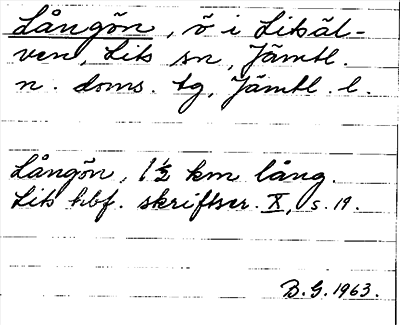 Långön, ö i Litsäl-
ven, Lits sn, Jämtl.
n. doms. tg, Jämtl. l.
Långön, 1½ km lång.
Lits hbf. skriftser. X, s. 19.
B.G. 1963.